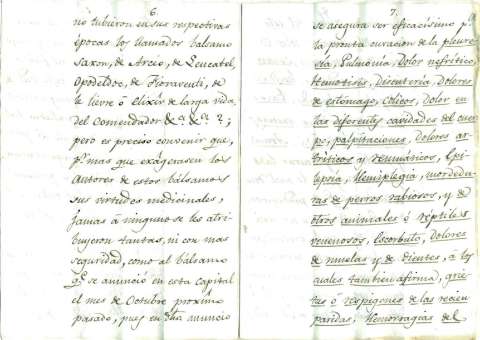 6.
no tubieron en sus respectivas
épocas los llamados bálsamo
Saxon, de Arceo, de Leucatel,
Opodeldoc, de Fioraventi, de
le lievre ó elixîr de larga vida,
del Comendador &c.ª &c.ª ?;
pero es preciso convenir que,
p.r mas que exâgerasen los
Autores de estos bálsamos
sus virtudes medicinales,
jamas á ninguno se les atri-
buyeron tantas, ni con mas
seguridad, como al bálsamo
q.e se anunció en esta Capital
el mes de Octubre proximo
pasado, pues en dho anuncio
7.
se asegura ser eficacisimo p.a
la pronta curacion de la pleure-
sía, Pulmonía, Dolor nefritico,
Hemotisis, Disenteria, Dolores
de estomago, cólicos, Dolor en
las diferentes cavidades del cuer-
po, palpitaciones, Dolores ar-
tríticos y reumáticos, Epi-
lepsia, Hemiplegia, mordedu-
ras de perros rabiosos, y de
otros animales ó réptiles
venenosos, Escorbuto, Dolores
de muelas y de dientes, á los
cuales tambien afirma, grie-
tas ó respigones de las recien
paridas, Hemorragias del